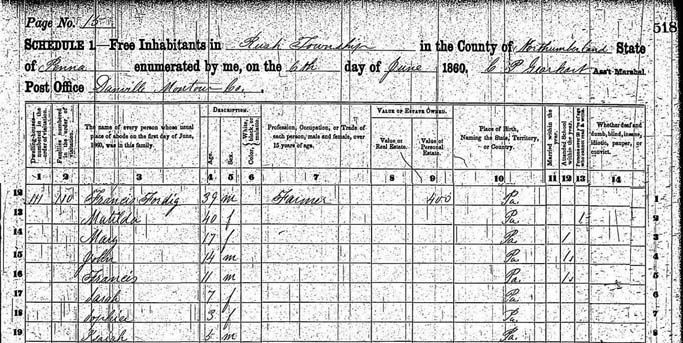 Page No. 15
518
SCHEDULE 1.—Free Inhabitants in Rush Township in the County of Northumberland State
of Penna enumerated by me, on the 6th day of June 1860, C P Gearhart Ass't Marshal.
Post Office Danville Montour Co.
Dwelling-houses numbered in the order of visitation.
Families numbered in the order of visitation.
The name of every person whose usual place of abode on the first day of June, 1860, was in this family.
DESCRIPTION.
Age.
Sex.
Color,
Profession, Occupation, or Trade of each person, male and female, over 15 years of age.
VALUE OF ESTATE OWNED.
Value of Real Estate.
Value of Personal Estate.
Place of Birth, Naming the State, Territory, or Country.
Married within the year.
Attended School within the year.
Whether deaf and dumb, blind, insane, idiotic, pauper, or convict.
1 2 3 4 5 6 7 8 9 10 11 12 13 14
12 111 110 Francis Fordig 39 m Farmer 400 Pa 1
13 Matilda 40 f Pa 1 2
14 Mary 17 f Pa 1 3
15 John 14 m Pa 1 4
16 Francis 11 m Pa 1 5
17 Sarah 7 f Pa 6
18 Sophia 3 f Pa 7
19 Isaiah 5 m Pa 8